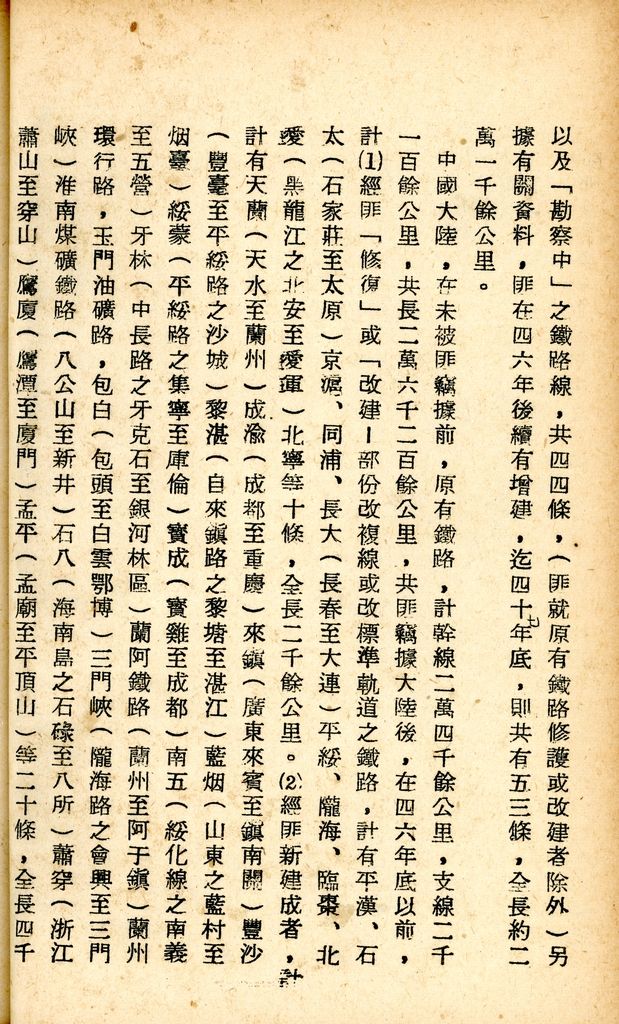 以及「勘察中」之鐵路線，共四四條，（匪就原有鐵路修護或改建者除外）另
據有關資料，匪在四六年後續有增建，迄四十七年底，則共有五三條，全長約二
萬一千餘公里。
中國大陸，在未被匪竊據前，原有鐵路，計幹線二萬四千餘公里，支線二千
一百餘公里，共長二萬六千二百餘公里，共匪竊據大陸後，在四六年底以前，
計⑴經匪「修復」或「改建—部份改複線或改標準軌道之鐵路，計有平漢、石
太（石家莊至太原）京滬、同浦、長大（長春至大連）平綏、隴海、臨棗、北
愛（黑龍江之北安至愛琿）北寧等十條，全長二千餘公里。⑵經匪新建成者，計
計有天蘭（天水至蘭州）成渝（成都至重慶）來鎮（廣東來賓至鎮南關）豐沙
（豐臺至平綏路之沙城）黎湛（自來鎮路之黎塘至湛江）藍烟（山東之藍村至
烟臺）綏蒙（平綏路之集寧至庫倫）寶成（寶雞至成都）南五（綏化線之南義
至五營）牙林（中長路之牙克石至銀河林區）蘭阿鐵路（蘭州至阿于鎮）蘭州
環行路，玉門油礦路，包白（包頭至白雲鄂博）三門峽（隴海路之會興至三門
峽）淮南煤礦鐵路（八公山至新井）石八（海南島之石碌至八所）蕭穿（浙江
蕭山至穿山）鷹廈（鷹潭至廈門）孟平（孟廟至平頂山）等二十條，全長四千